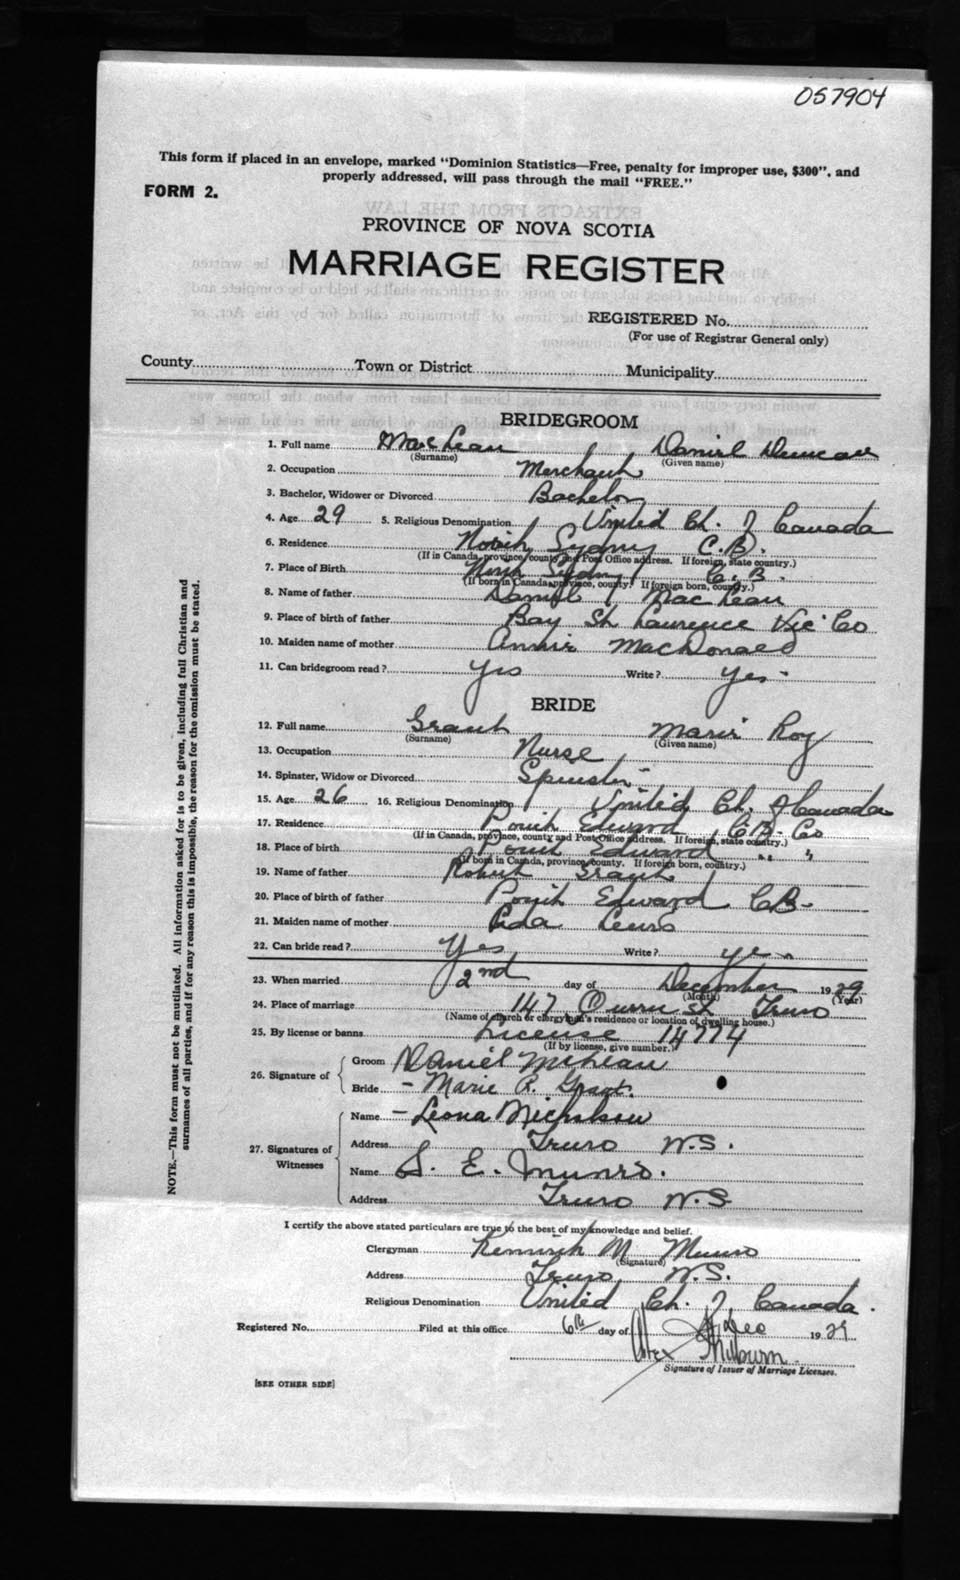 057904
This form if placed in an envelope, marked "Dominion Statistics—Free, penalty for improper use, $300", and
properly addressed, will pass through the mail "FREE."
FORM 2.
PROVINCE OF NOVA SCOTIA
MARRIAGE REGISTER
REGISTERED No.
(For use of Registrar General only)
County Town or District Municipality
BRIDEGROOM
1. Full name MacLean Daniel Duncan
(Surname) (Given name)
2. Occupation Merchant
3. Bachelor, Widower or Divorced Bachelor
4. Age 29 5. Religious Denomination United Ch. of Canada
6. Residence North Sydney C.B.
(If in Canada, province, county and Post Office address. If foreign, state country.)
7. Place of Birth North Sydney C.B.
(If born in Canada, province, county. If foreign born, country.)
8. Name of father Daniel MacLean
9. Place of birth of father Bay St Laurence Vic Co
10. Maiden name of mother Annie MacDonald
11. Can bridegroom read? Yes Write? Yes
BRIDE
12. Full name Grant Marie Roy
(Surname) (Given name)
13. Occupation Nurse
14. Spinster, Widow or Divorced Spinster
15. Age 26 16. Religious Denomination United Ch. of Canada
17. Residence Point Edward C.B. Co
(If in Canada, province, county and Post Office address. If foreign, state country.)
18. Place of birth Point Edward " "
(If born in Canada, province, county. If foreign born, country.)
19. Name of father Robert Grant
20. Place of birth of father Point Edward CB
21. Maiden name of mother Ada
22. Can bride read? Yes Write? yes
23. When married 2nd day of December 1929
(Month) (Year)
24. Place of marriage 147 Queen St Truro
(Name of church or clergyman's residence or location of dwelling house.)
25. By license or banns License 14774
(If by license, give number.)
26. Signature of Groom Daniel McLean
Bride – Marie R. Grant.
27. Signatures of Witnesses Name – Leona Nicholson
Address Truro N.S.
Name S. E. Munro.
Address Truro N.S
I certify the above stated particulars are true to the best of my knowledge and belief.
Clergyman M Munro
(Signature)
Address Truro, N.S.
Religious Denomination United Ch. of Canada.
Registered No. Filed at this office 6th day of Dec 1929
Alex Milburn
Signature of Issuer of Marriage Licenses.
[SEE OTHER SIDE]
NOTE.—This form must not be mutilated. All information asked for is to be given, including full Christian and
surnames of all parties, and if for any reason this is impossible, the reason for the omission must be stated.